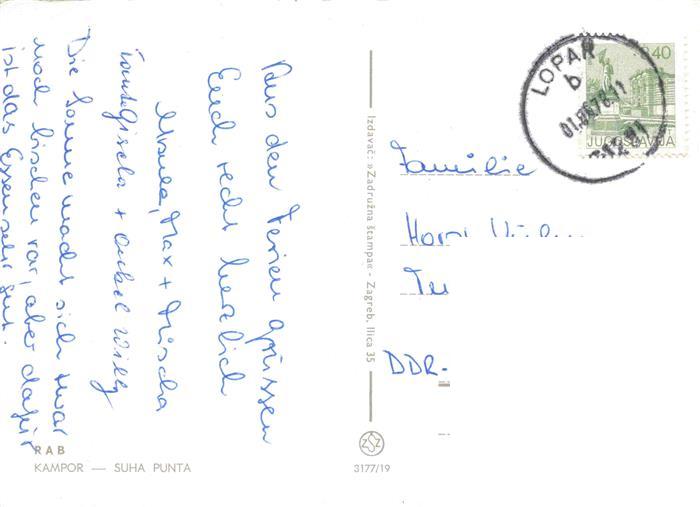 Aus den Ferien grüssen
Euch recht herzlich
Ursula, Max + Mischa
Tante Gisela + Onkel Willy
Die Sonne macht sich zwar
noch bischen rar, aber dafür
ist das Essen sehr gut.
Izdavač: »Zadružna štampa« - Zagreb, Ilica 35
LOPAR
b
2.40
JUGOSLAVIJA
Familie
Horni
Tu
DDR-
RAB
KAMPOR — SUHA PUNTA
3177/19